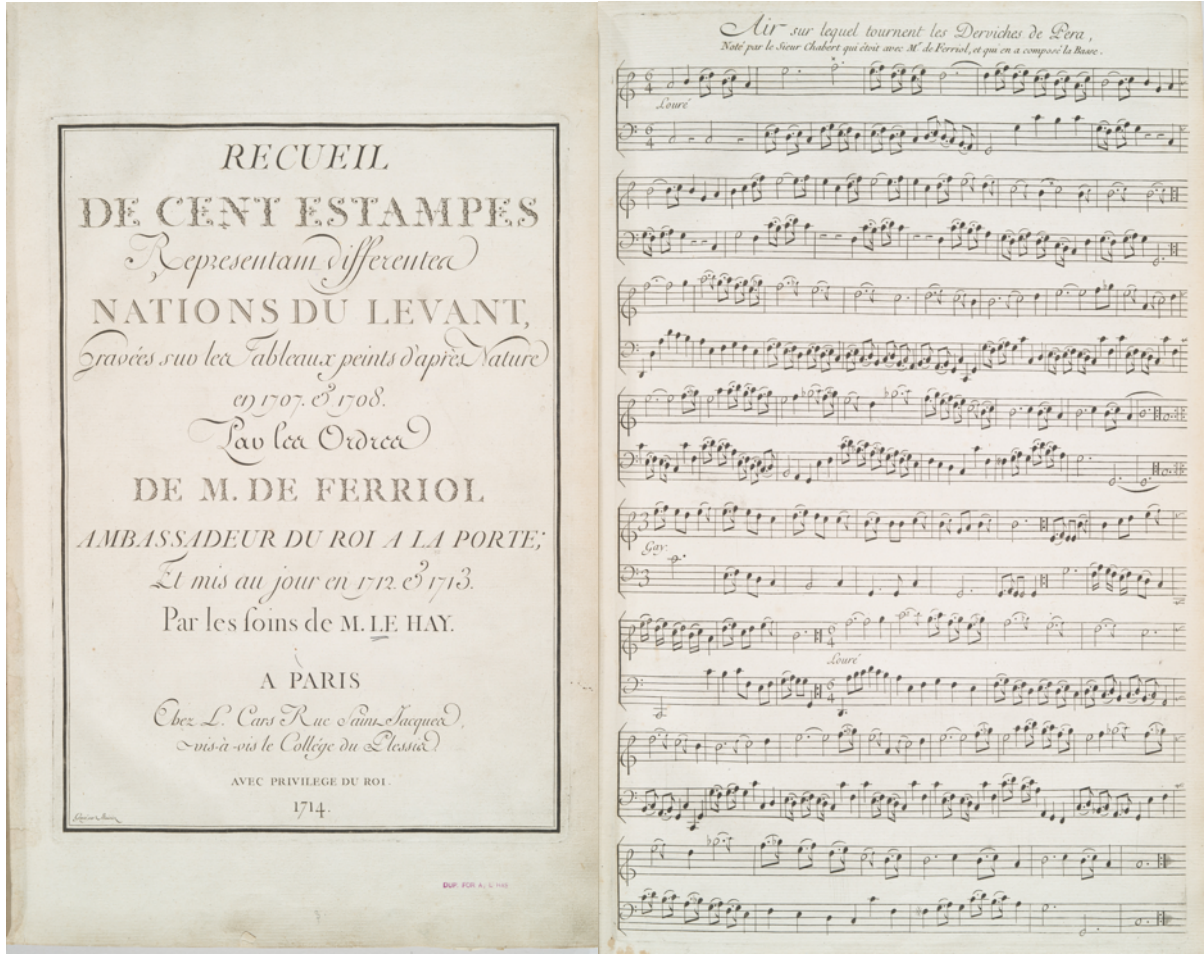 RECUEIL
DE CENT ESTAMPES
Representant differentes
NATIONS DU LEVANT,
Gravées sur les Tableaux peints d'après Nature
en 1707. & 1708.
Par les Ordres
DE M. DE FERRIOL
AMBASSADEUR DU ROI A LA PORTE;
Et mis au jour en 1712. & 1713.
Par les soins de M. LE HAY.
A PARIS
Chez L. Cars Rue Saint Jacques,
vis-à-vis le Collége du Plessis
AVEC PRIVILEGE DU ROI.
1714.
DUP. FOR
Air sur lequel tournent les Derviches de Pera,
Noté par le Sieur Chabert qui étoit avec Mr. de Ferriol, et qui en a composé la Basse.
Louré
Gay.
Louré